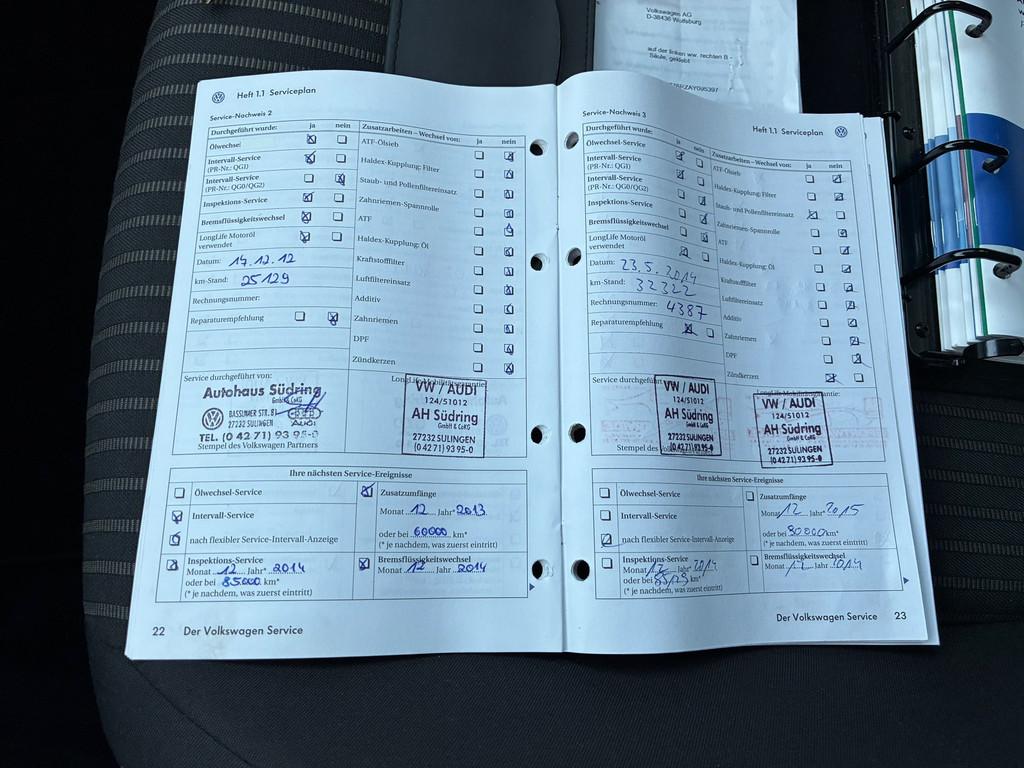 Volkswagen AG
D-38436 Wolfsburg
auf der linken ww. rechten B -
Säule, geklebt
Heft 1.1 Serviceplan
Service-Nachweis 2
Durchgeführt wurde: ja nein
Ölwechsel
Intervall-Service
(PR-Nr.: QG1)
Intervall-Service
(PR-Nr.: QG0/QG2)
Inspektions-Service
Bremsflüssigkeitswechsel
LongLife Motoröl
verwendet
Datum: 14.12.12
km-Stand: 25129
Rechnungsnummer:
Reparaturempfehlung
Zusatzarbeiten – Wechsel von: ja nein
ATF-Ölsieb
Haldex-Kupplung: Filter
Staub- und Pollenfiltereinsatz
Zahnriemen-Spannrolle
ATF
Haldex-Kupplung: Öl
Kraftstofffilter
Luftfiltereinsatz
Additiv
Zahnriemen
DPF
Zündkerzen
Service durchgeführt von:
Autohaus Südring
GmbH & CoKG
BASSUMER STR. 81
27232 SULINGEN
Audi
TEL. (0 42 71) 93 95-0
Stempel des Volkswagen Partners
VW / AUDI
124/51012
AH Südring
GmbH & CoKG
27232 SULINGEN
(0 42 71) 93 95-0
Ihre nächsten Service-Ereignisse
Ölwechsel-Service
Intervall-Service
nach flexibler Service-Intervall-Anzeige
Zusatzumfänge
Monat 12 Jahr* 2013
oder bei 60000 km*
(* je nachdem, was zuerst eintritt)
Inspektions-Service
Monat 12 Jahr* 2014
oder bei 85000 km*
(* je nachdem, was zuerst eintritt)
Bremsflüssigkeitswechsel
Monat 12 Jahr 2014
22 Der Volkswagen Service
Heft 1.1 Serviceplan
Service-Nachweis 3
Durchgeführt wurde: ja nein
Ölwechsel-Service
Intervall-Service
(PR-Nr.: QG1)
Intervall-Service
(PR-Nr.: QG0/QG2)
Inspektions-Service
Bremsflüssigkeitswechsel
LongLife Motoröl
verwendet
Datum: 23.5.2014
km-Stand: 32322
Rechnungsnummer: 4387
Reparaturempfehlung
Zusatzarbeiten – Wechsel von: ja nein
ATF-Ölsieb
Haldex-Kupplung: Filter
Staub- und Pollenfiltereinsatz
Zahnriemen-Spannrolle
ATF
Haldex-Kupplung: Öl
Kraftstofffilter
Luftfiltereinsatz
Additiv
Zahnriemen
DPF
Zündkerzen
VW / AUDI
124/51012
AH Südring
GmbH & CoKG
27232 SULINGEN
(0 42 71) 93 95-0
VW / AUDI
124/51012
AH Südring
GmbH & CoKG
27232 SULINGEN
(0 42 71) 93 95-0
Ihre nächsten Service-Ereignisse
Ölwechsel-Service
Intervall-Service
nach flexibler Service-Intervall-Anzeige
Zusatzumfänge
Monat 12 Jahr* 2015
oder bei 90000 km*
(* je nachdem, was zuerst eintritt)
Inspektions-Service
Monat 12 Jahr* 2014
oder bei km*
(* je nachdem, was zuerst eintritt)
Bremsflüssigkeitswechsel
Monat 12 Jahr 2014
Der Volkswagen Service 23